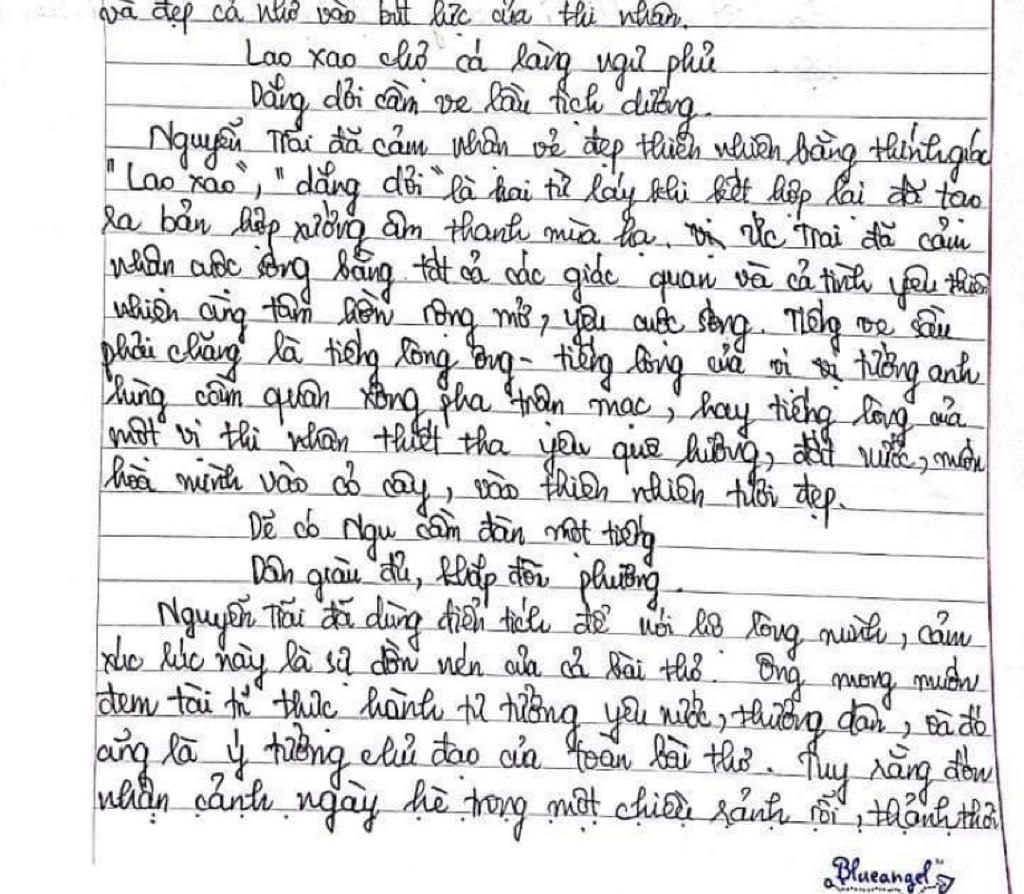 và đẹp cả nhờ vào bút lực của thi nhân.
Lao xao chợ cá làng ngư phủ
Dắng dỏi cầm ve lầu tịch dương.
Nguyễn Trãi đã cảm nhận vẻ đẹp thiên nhiên bằng thính giác
"Lao xao", "dắng dỏi" là hai từ láy khi kết hợp lại đã tạo
ra bản hợp xướng âm thanh mùa hạ. Ức Trai đã cảm
nhận cuộc sống bằng tất cả các giác quan và cả tình yêu thiên
nhiên cùng tâm hồn rộng mở, yêu cuộc sống. Tiếng ve sầu
phải chăng là tiếng lòng ông - tiếng lòng của vị tướng anh
hùng cầm quân xông pha trận mạc, hay tiếng lòng của
một vị thi nhân thiết tha yêu quê hương, đất nước, muốn
hoà mình vào cỏ cây, vào thiên nhiên tươi đẹp.
Dẽ có Ngu cầm đàn một tiếng
Dân giàu đủ, khắp đòi phương.
Nguyễn Trãi đã dùng điển tích để nói hộ lòng mình, cảm
xúc lúc này là sự dồn nén của cả bài thơ. Ông mong muốn
đem tài trí thức hành tư tưởng yêu nước, thương dân, và đó
cũng là ý tưởng chủ đạo của toàn bài thơ. Tuy rằng đón
nhận cảnh ngày hè trong một chiều rảnh rỗi, thảnh thơi
Blueangel